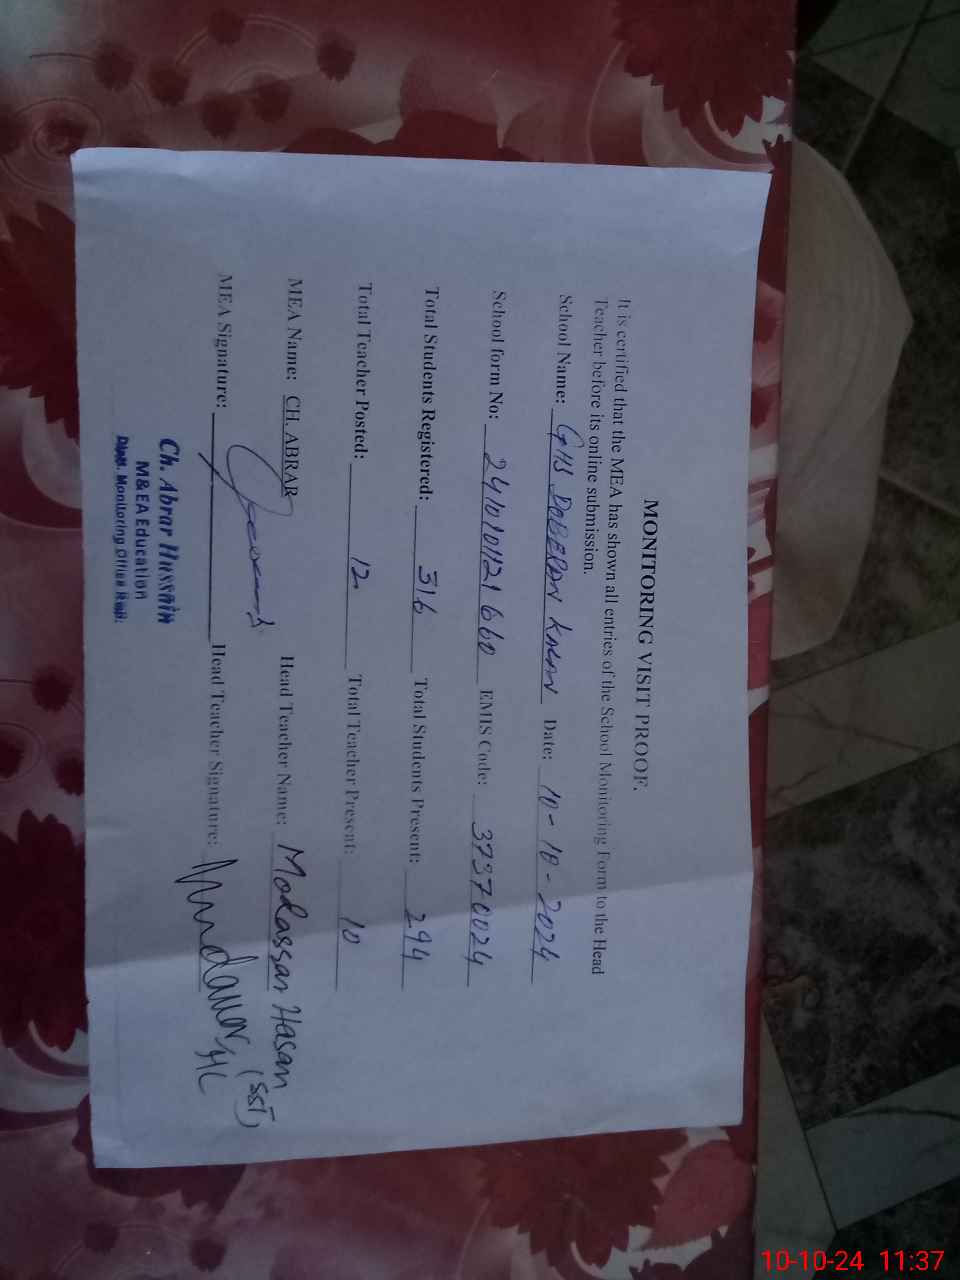 MONITORING VISIT PROOF.
It is certified that the MEA has shown all entries of the School Monitoring Form to the Head
Teacher before its online submission.
School Name: GHS DOBERAN KALAN Date: 10-10-2024
School form No: 241010121660 EMIS Code: 37370024
Total Students Registered: 316 Total Students Present: 294
Total Teacher Posted: 12 Total Teacher Present: 10
MEA Name: CH. ABRAR Head Teacher Name: Modassar Hasan
(SST)
MEA Signature: Head Teacher Signature:
Ch. Abrar Hussain
M&EA Education
Distt. Monitoring Office Rwp.
10-10-24 11:37